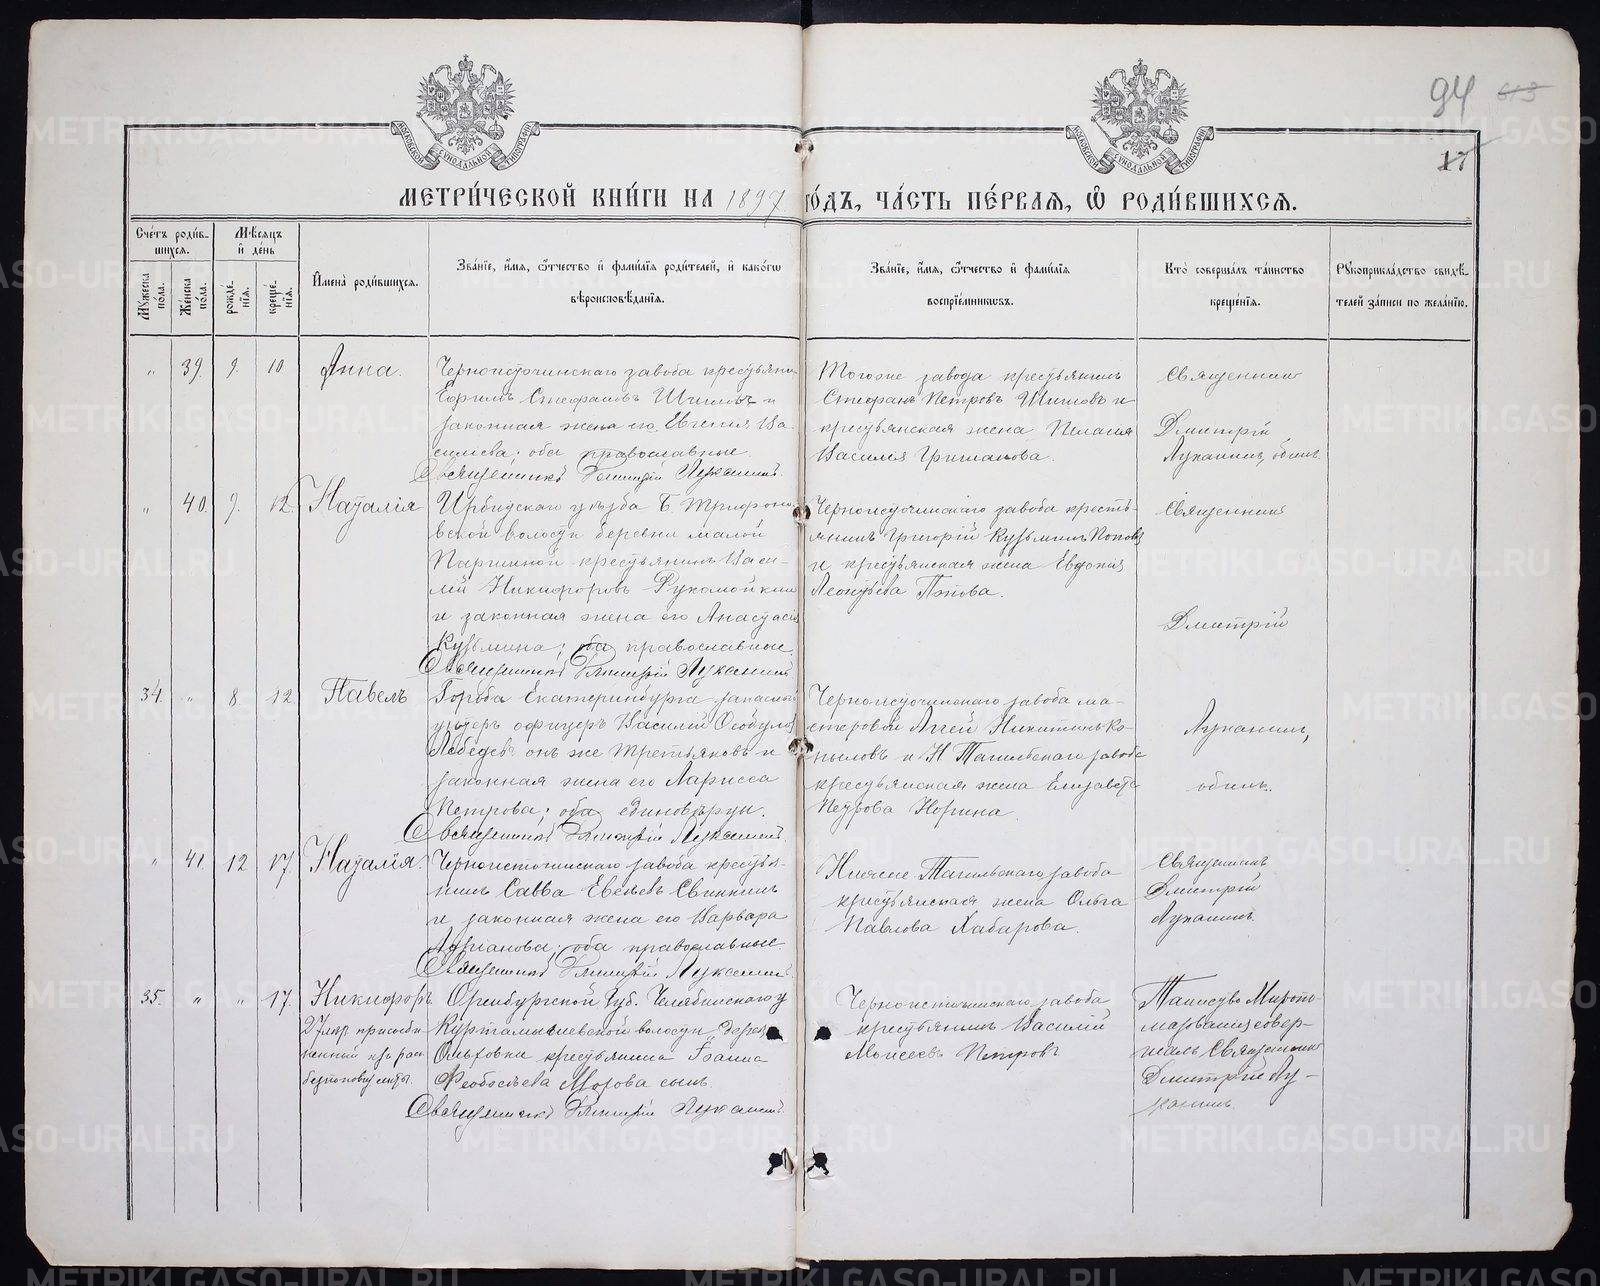 94 613
17
МОСКОВСКОЙ СѴНОДАЛЬНОЙ ТИПОГРАФІИ
МОСКОВСКОЙ СѴНОДАЛЬНОЙ ТИПОГРАФІИ
МЕТРИ́ЧЕСКОЙ КНИ́ГИ НА 1897 ГО́ДЪ, ЧА́СТЬ ПЕ́РВАЯ, Ѽ РОДИ́ВШИХСЯ.
Сче́тъ роди́в-
шихся.
Му́жеска по́ла.
Же́нска по́ла.
Мѣ́сяцъ и҆ де́нь
рожде́-нїя.
креще́-нїя.
И҆мена̀ роди́вшихся.
Зва́нїе, и҆́мя, ѻ҆́тчество и҆ фами́лїя роди́телей, и҆ како́гѡ
вѣроисповѣ́данїя.
Зва́нїе, и҆́мя, ѻ҆́тчество и҆ фами́лїя
воспрїе́мникѡвъ.
Кто̀ соверша́лъ та́инство
креще́нїя.
Рꙋкоприкла́дство свидѣ́-
телей за́писи по жела́нїю.
„ 39. 9. 10 Анна.
Черноисточинскаго завода крестьянинъ
Ефимъ Стефановъ Шиловъ и
законная жена его Евгения Ва-
сильева; оба православные.
Священникъ Димитрій Луканинъ
Тогоже завода крестьянинъ
Стефанъ Петровъ Шиловъ и
крестьянская жена Пелагия
Василья Гришанова.
Священникъ
Димитрій
Луканинъ, общій.
„ 40. 9. 12. Наталія
Ирбитскаго уѣзда Б. Трифоно-
вской волости деревни малой
Паршиной крестьянинъ Васи-
лій Никифоровъ Рукомойкинъ
и законная жена его Анастасія
Кузьмина; оба православные.
Священникъ Димитрій Луканинъ
Черноисточинскаго завода кресть-
янинъ Григорій Кузьминъ Поповъ
и крестьянская жена Евдокия
Леонтьева Попова.
Священникъ
Димитрій
34. „ 8. 12. Павелъ
Города Екатеринбурга запасный
унтеръ офицеръ Василий Феодуловъ
Лебедевъ онъ же Третьяковъ и
законная жена его Ларисса
Петрова; оба единовѣрцы.
Священникъ Димитрій Луканинъ.
Черноисточинскаго завода ма-
стеровой Агей Никитинъ Ко-
пыловъ и Н Тагильскаго завода
крестьянская жена Елизавета
Петрова Норина.
Луканинъ,
общій.
„ 41. 12 17. Наталія.
Черноисточинскаго завода кресть-
нинъ Савва Евсѣевъ Свинкинъ
и законная жена его Варвара
Адрианова; оба православные.
Священникъ Димитрій Луканинъ.
Нижне Тагильскаго завода
крестьянская жена Ольга
Павлова Хабарова.
Священникъ
Димитрій
Луканинъ.
35. „ „ 17. Никифоръ
27 лѣтъ присоеди-
ненный изъ раск.
безпоповщ. секты.
Оренбургской Губ. Челябинскаго у
Куртамышевской волости дерев.
Ольховки крестьянина Іоанна
Феодосѣева Мозова сынъ.
Священникъ Димитрій Луканинъ.
Черноисточинскаго завода
крестьянинъ Василій
Моисеевъ Петровъ
Таинство Миропо-
мазания совер-
шалъ Священникъ
Димитрій Лу-
канинъ.
METRIKI.GASO-URAL.RU